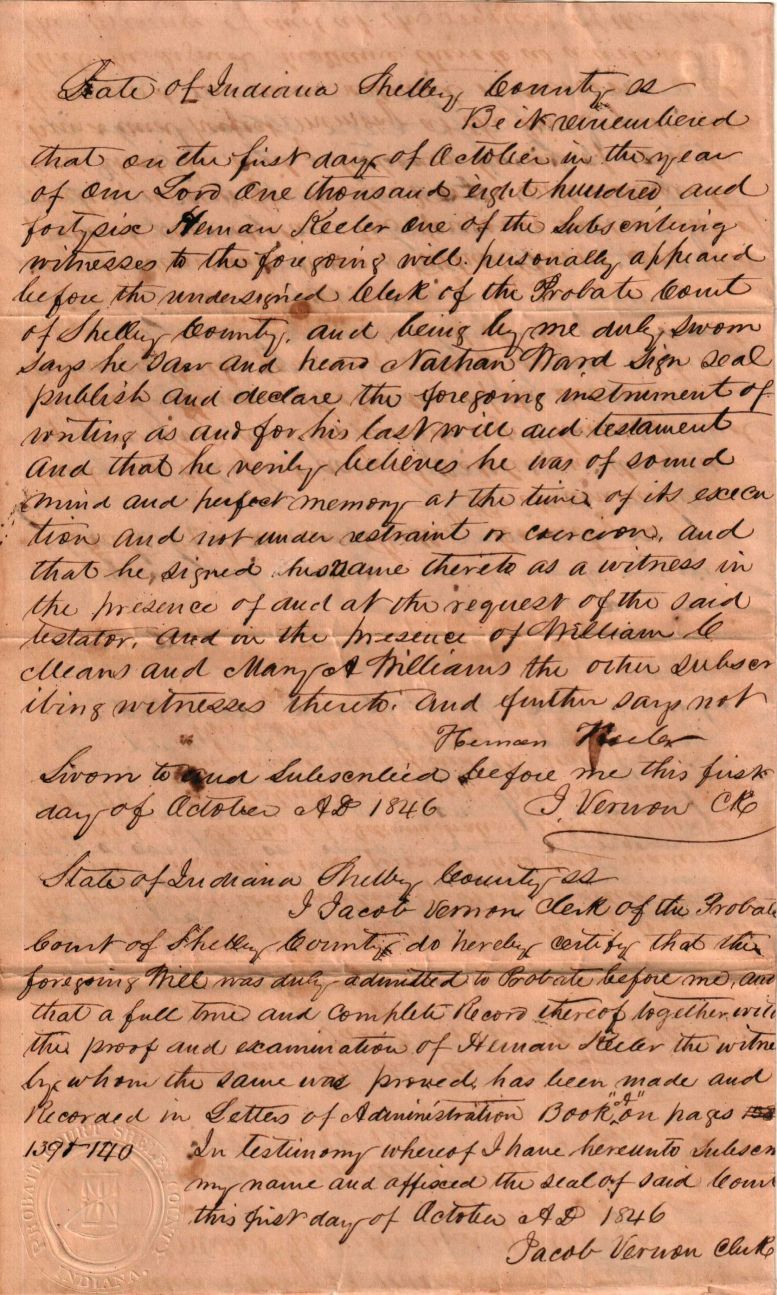 State of Indiana Shelby County ss
Be it remembered
that on the first day of October in the year
of our Lord One thousand eight hundred and
forty six Heman Keeler one of the Subscribing
witnesses to the foregoing will personally appeared
before the undersigned Clerk of the Probate Court
of Shelby County, and being by me duly sworn
says he saw and heard Nathan Ward Sign seal
publish and declare the foregoing instrument of
writing as and for his last will and testament
And that he verily believes he was of sound
mind and perfect memory at the time of its execu
tion and not under restraint or coercion, and
that he signed his name thereto as a witness in
the presence of and at the request of the said
testator, and in the presence of William C
Means and Mary A Williams the other subscr
ibing witnesses thereto. And further says not
Heman Keeler
Sworn to and Subscribed before me this first
day of October AD 1846 J. Vernon Clk
State of Indiana Shelby County ss
I Jacob Vernon Clerk of the Probate
Court of Shelby County do hereby certify that the
foregoing Will was duly admitted to Probate before me, and
that a full true and complete Record thereof together with
the proof and examination of Heman Keeler the witne
by whom the same was proved, has been made and
Recorded in Letters of Administration Book "A" on pages
139 & 140 In testimony whereof I have hereunto Subscri
my name and affixed the seal of said Court
this first day of October AD 1846
Jacob Vernon Clerk
PROBATE COURT SHELBY COUNTY
INDIANA.